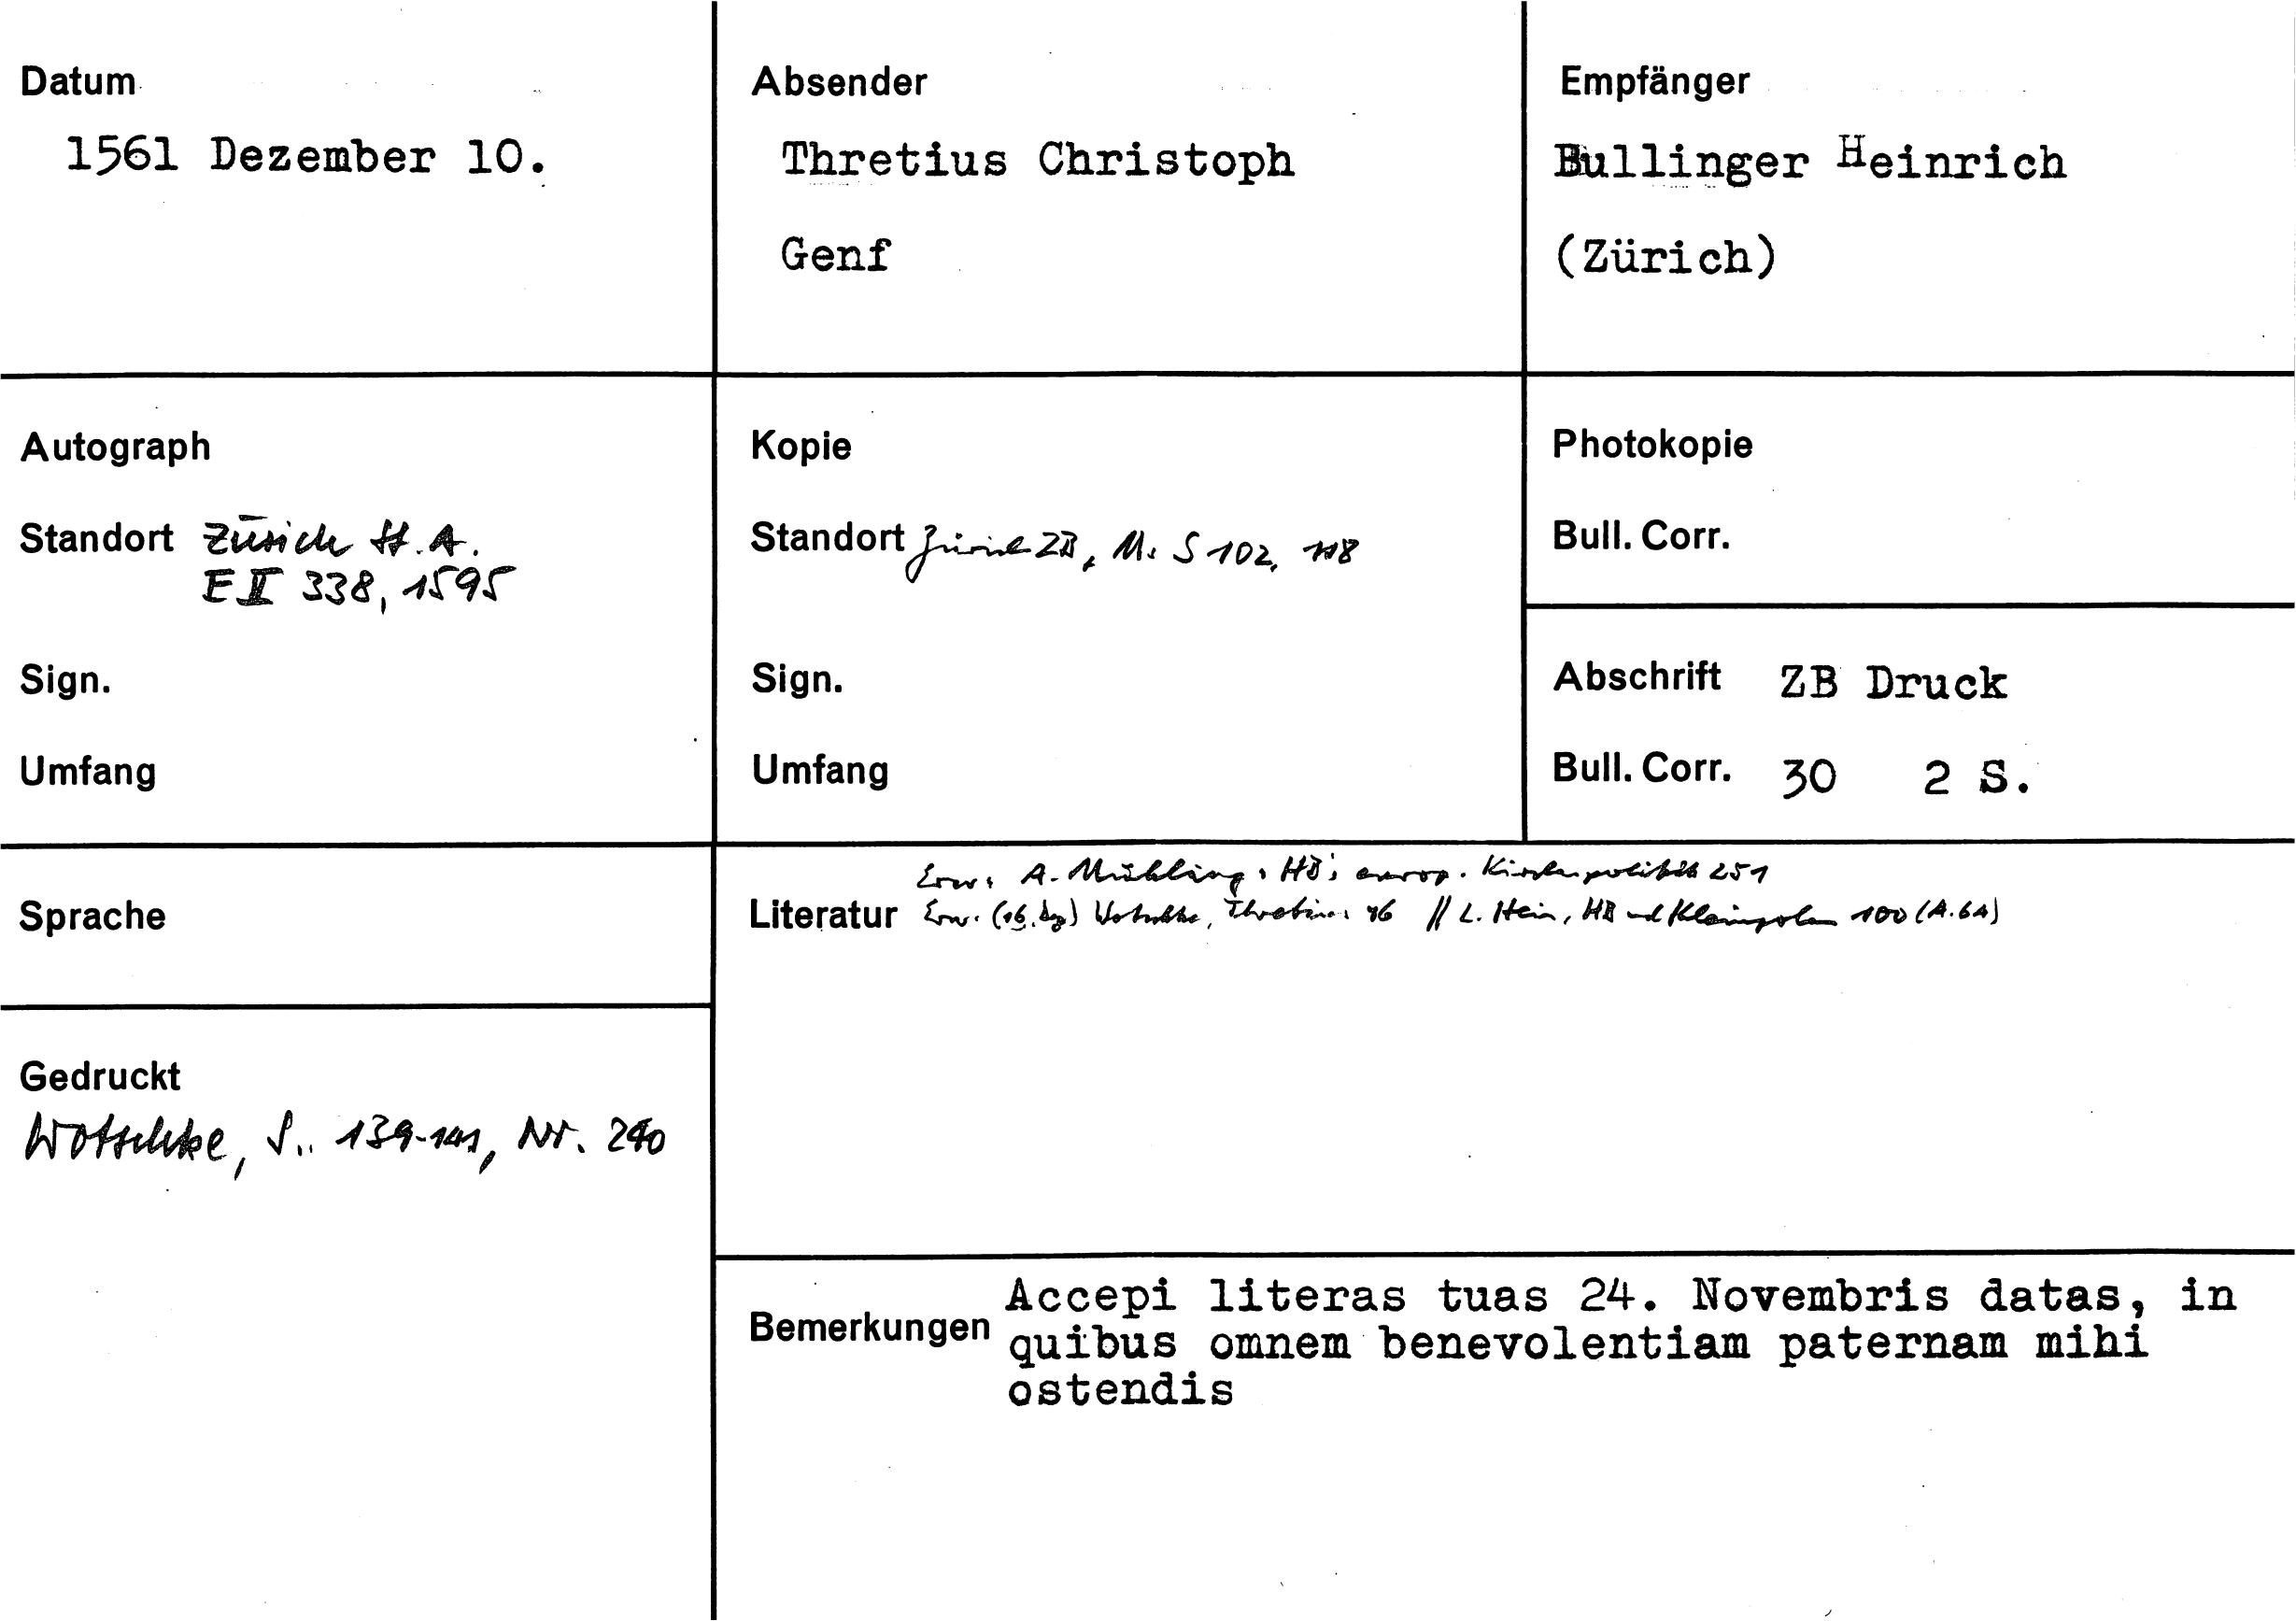 Datum
1561 Dezember 10.
Absender
Thretius Christoph
Genf
Empfänger
Bullinger Heinrich
(Zürich)
Autograph
Standort Zürich St.A.
E II 338, 1595
Sign.
Umfang
Kopie
Standort Zürich ZB, Ms S 102, 118
Sign.
Umfang
Photokopie
Bull. Corr.
Abschrift ZB Druck
Bull. Corr. 30 2 S.
Sprache
Erw. A. Mühling, HB's europ. Kirchenpolitik 251
Literatur Erw. (16. Dez) Wotschke, Thretius 46 // L. Hein, HB und Kleinpolen 100 (A.64)
Gedruckt
Wotschke, S. 139-141, Nr. 240
Bemerkungen Accepi literas tuas 24. Novembris datas, in
quibus omnem benevolentiam paternam mihi
ostendis